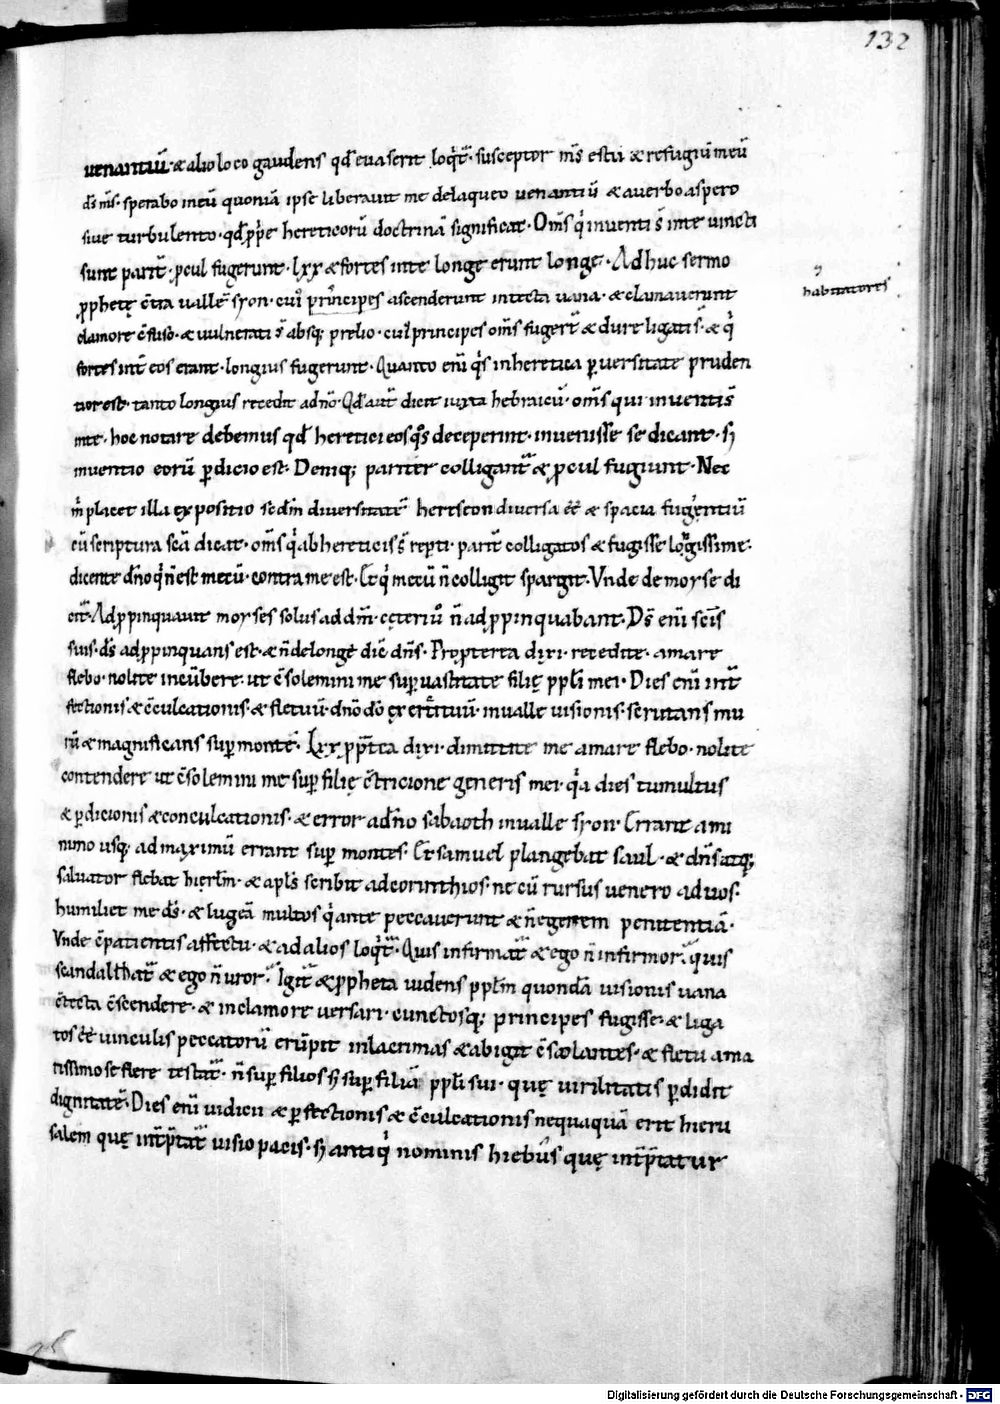 132
venantiū· & alio loco gaudens qđ evaserit loqͥt᷑· susceptor m̄s es tu & refugiū meū
dſ m̄s· sperabo in eū quoniā ipse liberavit me de laqueo venantiū & a verbo aspero
sive turbulento· qđ ꝓpͥe hereticorū doctrinā significat· Om̄s qͥ inventi s̄ in te vincti
sunt parit᷑· ꝓcul fugerunt· lxx & fortes in te longe erunt longe· Adhuc sermo
ꝓphetę c̄tra vallē syon· cuiꝰ principes ascenderunt in tecta vana· & clamaverunt
habitatores
clamore c̄fuso· & vulnerati s̄ absq; prelio· cuiꝰ principes om̄s fuger̄t & dure ligati s̄· & qͥ
fortes int̄ eos erant· longius fugerunt· Quanto eni᷑ qͥs in heretica ꝑversitate pruden
tior est· tanto longius recedit a dn̄o· Qđ aut̄ dicit iuxta hebraicū· om̄s qui inventi s̄
in te· hoc notare debemus qđ heretici eos qͦs deceperint· invenisse se dicant· sꝫ
inventio eorū ꝑdicio est· Deniq; pariter colligant᷑ & ꝓcul fugiunt· Nec
m̄ placet illa expositio sedm̄ diversitatē hereseon diversa eē & spacia fugientiū
cū scriptura sc̄a dicat· om̄s qͥ ab hereticis s̄ rep̄ti· parit̄ colligatos & fugisse longissime·
dicente dn̄o qͥ n̄ est mecū· contra me est· Et qͥ mecū n̄ colligit spargit· Vnde de moyse di
cit᷑· Adꝓpinquavit moyses solus ad dm̄· cęteri ů n̄ adꝓpinquabant· Ds̄ eni᷑ sc̄is
suis· ds̄ adꝓpinquans est· & n̄ de longe dic̄ dn̄s· Propterea dixi· recedite· amare
flebo· nolite incūbere· ut c̄solemini me suꝑ vastitate filię ppl̄i mei· Dies eni᷑ int̄
fectionis & c̄culcationis· & fletuū· dn̄o dō exercituū· in valle visionis· scrutans mu
rū & magnificans suꝑ monte· Lxx ꝓpt̄ea dixi· dimittite me amare flebo· nolite
contendere ut c̄solemini me suꝑ filię c̄tricione generis mei· qͥa dies tumultus
& ꝑdicionis & conculcationis· & error a dn̄o sabaoth in valle syon· Errant a mi
nimo usq; ad maximū errant suꝑ montes· Et samuel plangebat saul· & dn̄s atq;
salvator flebat hierl̄m· & apl̄s scribit ad corinthios· ne cū rursus venero ad vos·
humiliet me ds̄· & lugeā multos qͥ ante peccaverunt & n̄ egerent penitentiā·
Vnde c̄patientis affectu· & ad alios loqͥt᷑· Quis infirmat᷑ & ego n̄ infirmor· quis
scandalizat᷑ & ego n̄ uror· Igit᷑ & ꝓpheta videns ppl̄m quondā visionis vana
c̄tecta c̄scendere· & in clamore versari· cunctosq; principes fugisse· & liga
tos eē vinculis peccatorū erūpit in lacrimas & abigit c̄solantes· & fletu ama
rissimo se flere testat᷑· n̄ suꝑ filios sꝫ suꝑ filiā ppl̄i sui· quę virilitatis ꝑdidit
dignitatē· Dies eni᷑ vidicii & ꝑfectionis & c̄culcationis nequaquā erit hieru
salem quę int̄p̄tat᷑ visio pacis· sꝫ antiqͥ nominis hiebus quę int̄p̄tatur
Digitalisierung gefördert durch die Deutsche Forschungsgemeinschaft - DFG